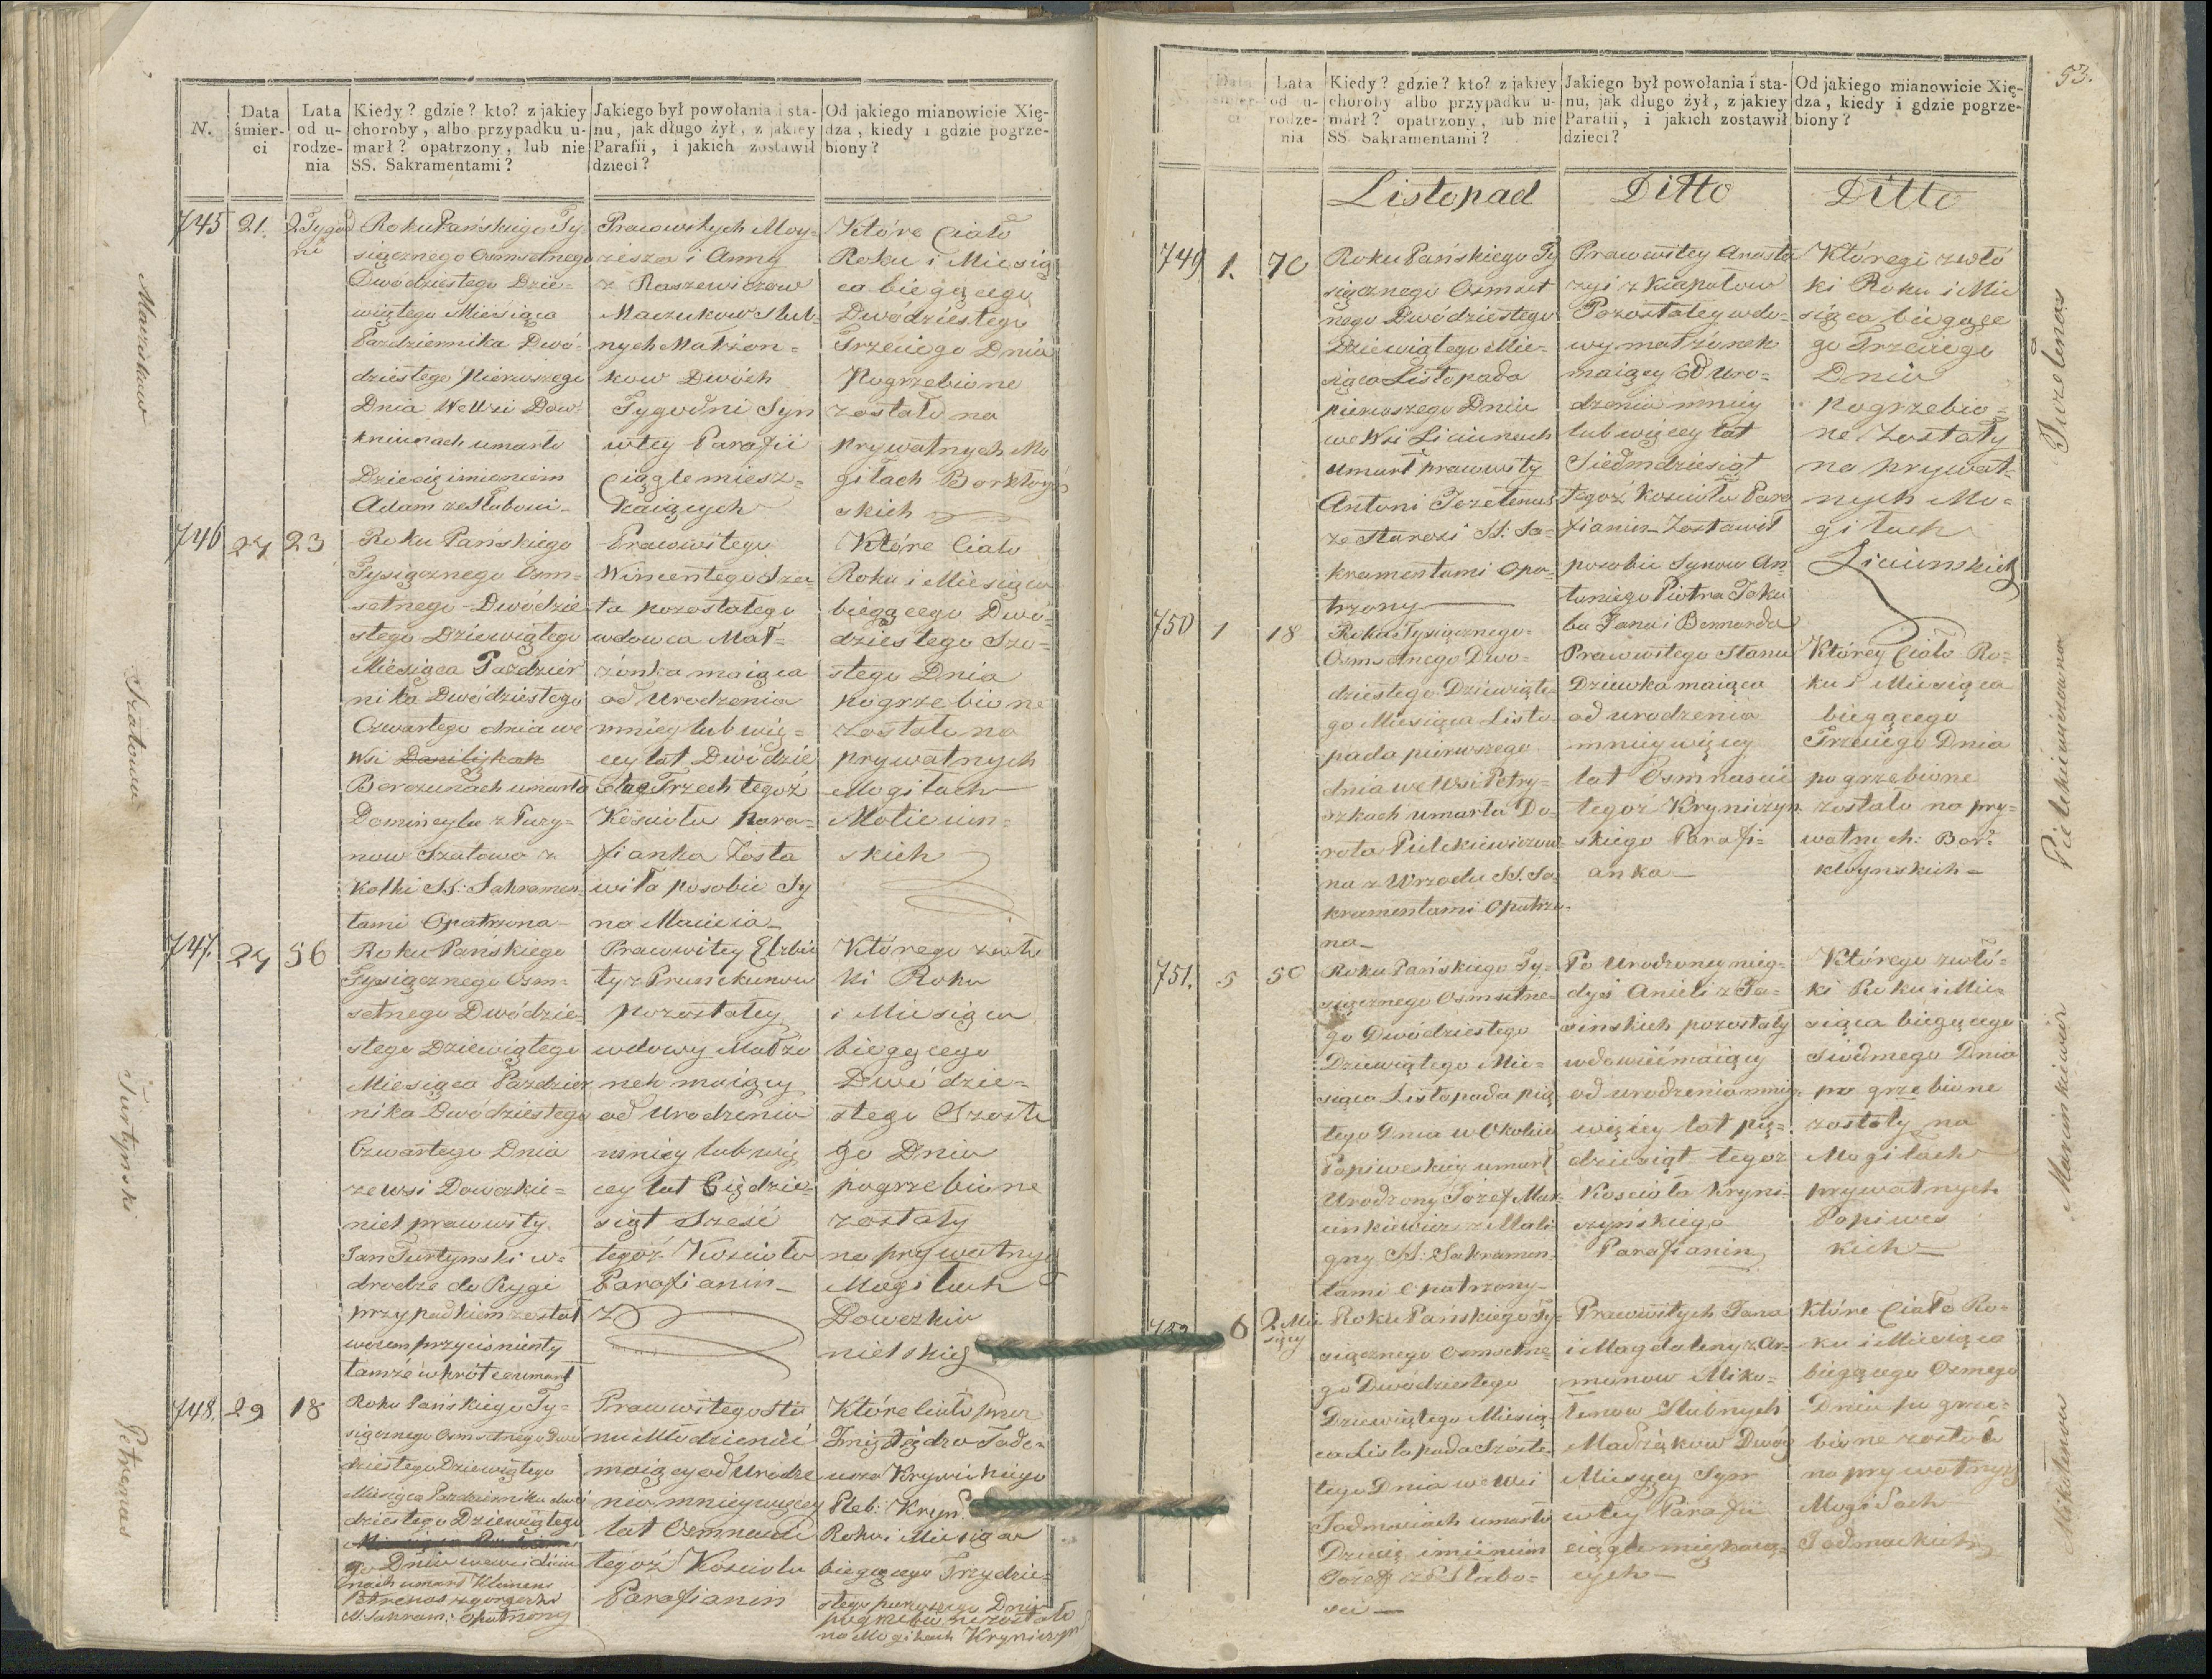 N.
Data śmier- ci
Lata od u- rodze- nia
Kiedy? gdzie? kto? z jakiey
choroby, albo przypadku u-
marł? opatrzony, lub nie
SS. Sakramentami?
Jakiego był powołania i sta-
nu, jak długo żył, z jakiey
Parafii, i jakich zostawił
dzieci?
Od jakiego mianowicie Xię-
dza, kiedy i gdzie pogrze-
biony?
745
21.
2 Tygod
ni
Roku Pańskiego Ty-
siącznego Osmsetnego
Dwódziestego Dzie-
wiątego Miesiąca
Października Dwó-
dziestego Pierwszego
Dnia We Wsi Dow-
kniunach umarło
Dziecię imieniem
Adam ze Słabości
Prawowitych Moy-
zesza i Anny
z Raszewiczow
Maczukow Slub-
nych Małżon-
kow Dwóch
Tygodni Syn
w tey Parafii
ciągle miesz-
kaiących
Które Ciało
Roku i Miesią
ca biegącego
Dwódziestego
Trzeciego Dnia
Pogrzebione
zostało na
prywatnych Mo
giłach Borkłoyń
skich
746
24
23
Roku Pańskiego
Tysiącznego Osm-
setnego Dwódzie
stego Dziewiątego
Miesiąca Paździer
nika Dwódziestego
Czwartego dnia we
Wsi Daniliszkach
Berczunach umarła
Domincela z Puzy-
now Szatowa z
Kołki SS: Sakramen-
tami Opatrzona
Prawowitego
Wincentego Sza
ta pozostałego
wdowca Mał-
żonka maiąca
od Urodzenia
mniey lub wię-
cey lat Dwódzie
ścia Trzech tegoż
Kościoła para-
fianka Zosta
wiła po sobie Sy
na Macieia
Które Ciało
Roku i Miesiąca
biegącego Dwó-
dziestego Szó-
stego Dnia
pogrzebione
zostało na
prywatnych
Mogiłach
Molicium-
skich
747.
24
56
Roku Pańskiego
Tysiącznego Osm-
setnego Dwódzie-
stego Dziewiątego
Miesiąca Paździer
nika Dwódziestego
Czwartego Dnia
ze wsi Dowczkie-
niel prawowity
Jan Turtynski w-
drodze do Rygi
przypadkiem został
wozem przyciśnienty
tamże wkrótce umarł
Prawowitey Elzbie
ty z Prunckunow
pozostałey
wdowy Małżo
nek maiący
od Urodzenia
mniey lub wię
cey lat Pięćdzie-
siąt Sześć
tegoż Kościoła
Parafianin
Którego zwło
ki Roku
i Miesiąca
biegącego
Dwódzie-
stego Szóste
go Dnia
pogrzebione
zostały
na prywatnych
Mogiłach
Dowczkie
nielskich
748.
29
18
Roku Pańskiego Ty-
siącznego Osmsetnego Dwó
dziestego Dziewiątego
Miesiąca Października dwó
dziestego Dziewiątego
go Dnia we wsi Liciu
nach umarł Klemens
Petrenas z gorączki
SS. Sakram: opatrzony
Prawowitego Sta
nu Młodzieniec
maiący od Urodze
nia mniey więcey
lat Osmnaście
tegoż Kościoła
Parafianin
Które Ciało przez
Imię Xiędza Tade-
usza Krywickiego
Pleb: Kryn.
Roku i Miesiąca
biegącego Trzydzie-
stego pierwszego Dnia
pogrzebione zostało
na Mogiłach Kryniczyn
Maczukow
Szatowa
Turtynski
Petrenas
53.
Data śmier- ci
Lata od u- rodze- nia
Kiedy? gdzie? kto? z jakiey
choroby albo przypadku u-
marł? opatrzony, lub nie
SS. Sakramentami?
Jakiego był powołania i sta-
nu, jak długo żył, z jakiey
Parafii, i jakich zostawił
dzieci?
Od jakiego mianowicie Xię-
dza, kiedy i gdzie pogrze-
biony?
Listopad
Ditto
Ditto
749
1.
70
Roku Pańskiego Ty
siącznego Osmset
nego Dwódziestego
Dziewiątego Mie-
siąca Listopada
pierwszego Dnia
we Wsi Liciunach
umarł prawowity
Antoni Jozelenas
ze starosi SS: Sa-
kramentami Opa-
trzony
Prawowitey Anasta
zyi z Kiapołow
Pozostałey wdo-
wy małżonek
maiący Od Uro-
dzenia mniey
lub więcey lat
Siedmdziesiąt
tegoż Kościoła Para
fianin Zostawił
po sobie Synow An-
toniego Piotra Jaku
ba Jana i Bernarda
Którego zwło
ki Roku i Mie
siąca biegące
go Trzeciego
Dnia
pogrzebio-
ne Zostały
na prywat-
nych Mo-
giłach
Liciunskich
750
1
18
Roku Tysiącznego
Osmsetnego Dwó-
dziestego Dziewiąte
go Miesiąca Listo-
pada pierwszego
dnia we Wsi Petry-
szkach umarła Do-
rota Pielekiewiczow
na z Wrzodu SS. Sa-
kramentami Opatrzo-
na
Prawowitego Stanu
Dziewka maiąca
od urodzenia
mniey więcey
lat Osmnaście
tegoż Kryniczyn
skiego Parafi-
anka
Którey Ciało Ro-
ku i Miesiąca
biegącego
Trzeciego Dnia
pogrzebione
zostało na pry-
watnych: Bor-
kłoynskich
751.
5
50
Roku Pańskiego Ty-
siącznego Osmsetne-
go Dwódziestego
Dziewiątego Mie-
siąca Listopada pią
tego Dnia w Okolicy
Papiweskiey umarł
Urodzony Józef Mar-
cinkiewicz z Mali
gny SS: Sakramen-
tami Opatrzony
Po Urodzoney nieg-
dyś Anieli z Ja-
sinskich pozostały
wdowiec maiący
od urodzenia mniey
więcey lat pię-
dziesiąt tegoż
Kościoła Kryni-
czyńskiego
Parafianin
Którego zwło-
ki Roku i Mie-
siąca biegącego
Siódmego Dnia
pogrzebione
zostały na
Mogiłach
prywatnych
Papiwes
kich
6
2 Mie
sięcy
Roku Pańskiego Ty-
siącznego Osmsetne-
go Dwódziestego
Dziewiątego Miesią-
ca Listopada Szóste-
tego Dnia we Wsi
Jodmaiach umarło
Dziecię imieniem
Jozef z Słabo-
ści
Prawowitych Jana
i Magdaleny z Ar-
monow Miko-
łenow Slubnych
Małżąkow Dwóch
Miesięcy Syn
w tey Parafii
ciągle mięszkaią-
cych
Które Ciało Ro-
ku i Miesiąca
biegącego Osmego
Dnia pogrze-
bione zostało
na prywatnych
Mogiłach
Jodmaickich
Jozelenas
Pielekiewiczowna
Marcinkiewicz
Mikołenow